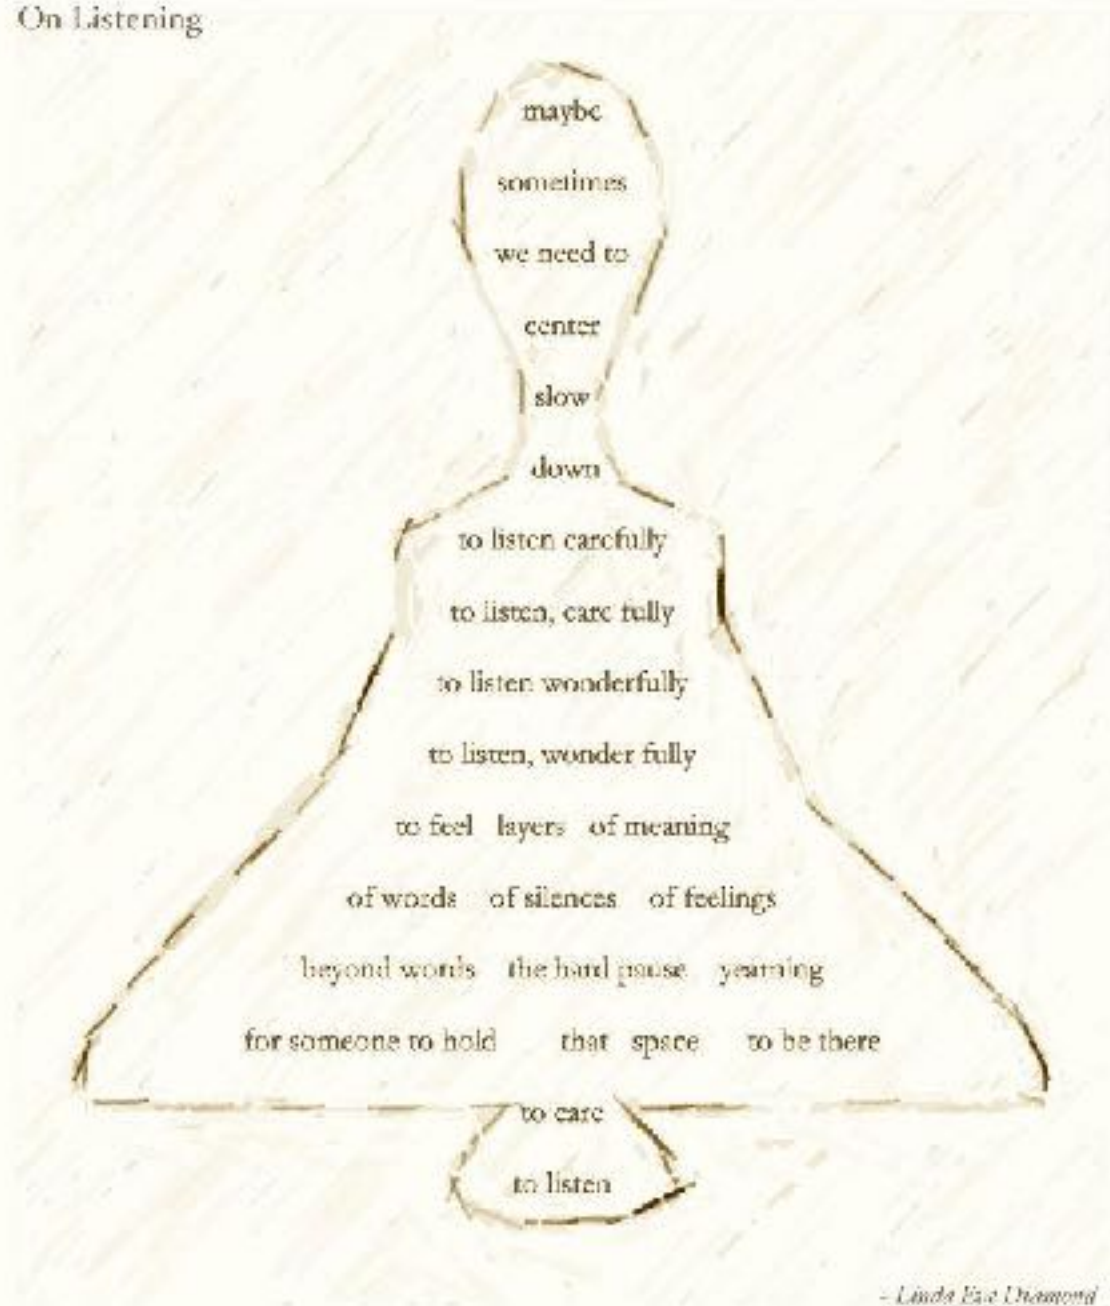 On Listening
maybe
sometimes
we need to
center
slow
down
to listen carefully
to listen, care fully
to listen wonderfully
to listen, wonder fully
to feel layers of meaning
of words of silences of feelings
beyond words the hard pause yearning
for someone to hold that space to be there
to care
to listen
- Linda Eve Diamond